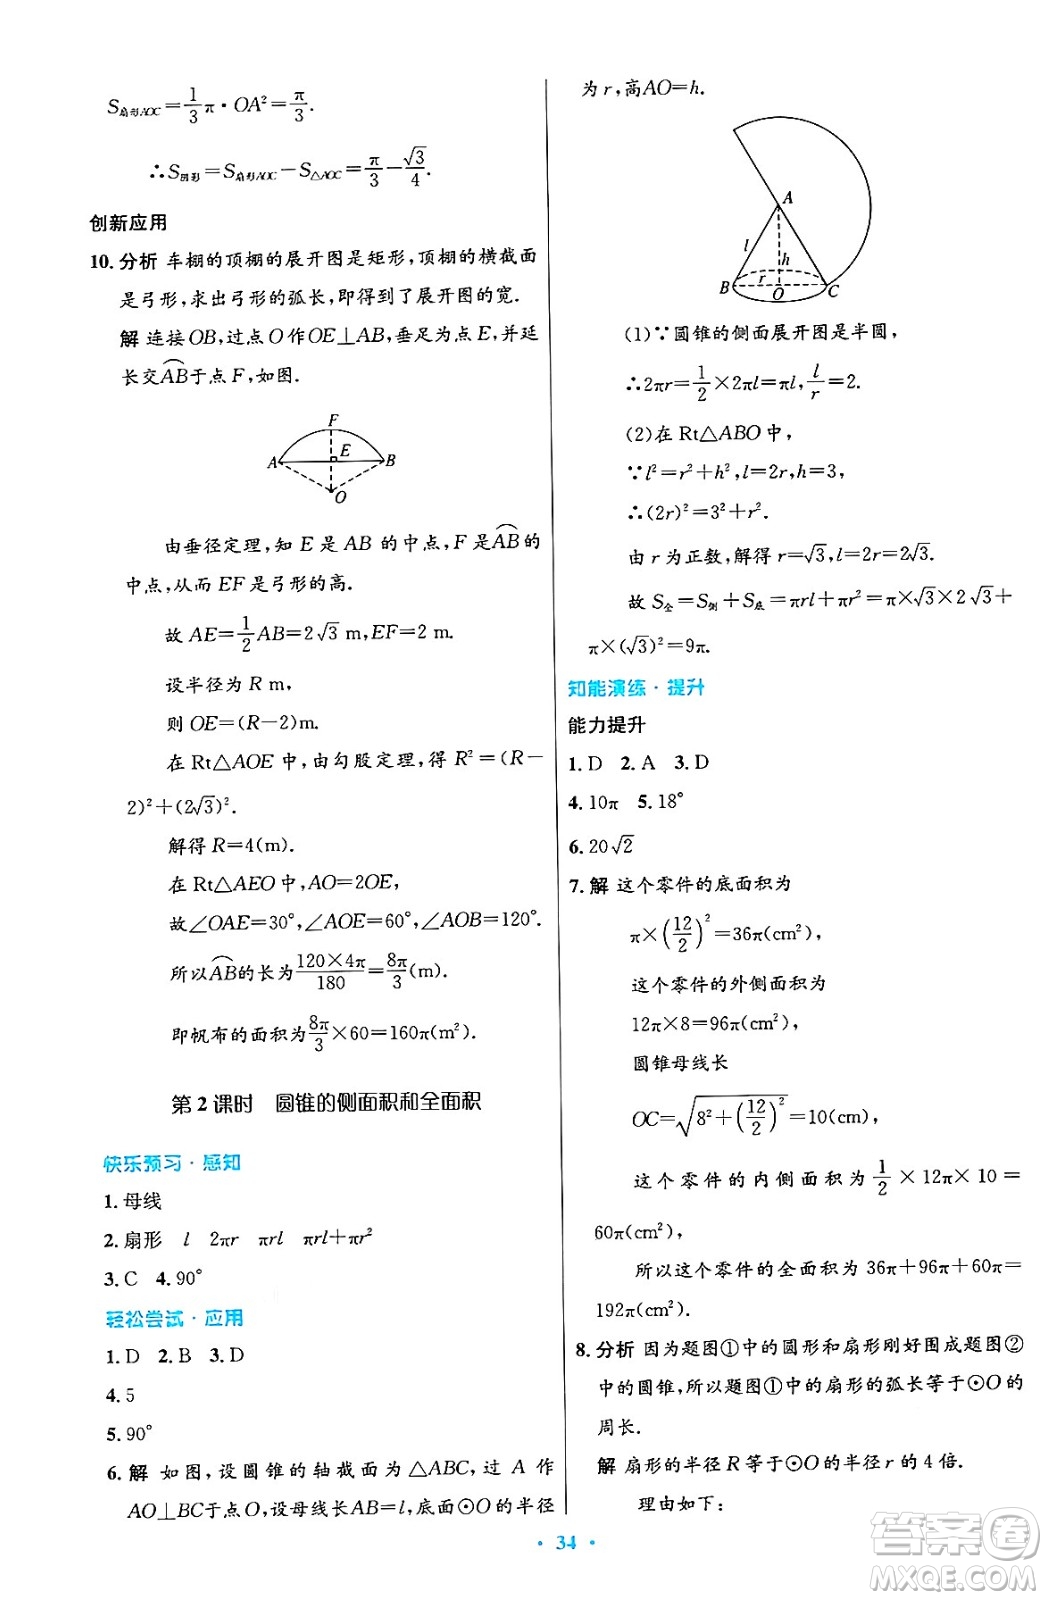 S扇形AOC=1/3π·OA²=π/3.
∴S阴影=S扇形AOC−S△AOC=π/3−√3/4.
创新应用
10. 分析 车棚的顶棚的展开图是矩形,顶棚的横截面
是弓形,求出弓形的弧长,即得到了展开图的宽.
解 连接OB,过点O作OE⊥AB,垂足为点E,并延
长交A͡B于点F,如图.
F
A E B
O
由垂径定理,知 E 是 AB 的中点,F 是A͡B的
中点,从而 EF 是弓形的高.
故 AE=1/2AB=2√3 m,EF=2 m.
设半径为 R m,
则 OE=(R−2)m.
在 Rt△AOE 中,由勾股定理,得 R²=(R−
2)²+(2√3)².
解得 R=4(m).
在 Rt△AEO 中,AO=2OE,
故∠OAE=30°,∠AOE=60°,∠AOB=120°.
所以A͡B的长为120×4π/180=8π/3(m).
即帆布的面积为8π/3×60=160π(m²).
第2课时 圆锥的侧面积和全面积
快乐预习·感知
1. 母线
2. 扇形 l 2πr πrl πrl+πr²
3. C 4. 90°
轻松尝试·应用
1. D 2. B 3. D
4. 5
5. 90°
6. 解 如图,设圆锥的轴截面为△ABC,过 A 作
AO⊥BC于点O,设母线长AB=l,底面⊙O的半径
为 r,高AO=h.
A
l h
B r O C
(1)∵圆锥的侧面展开图是半圆,
∴2πr=1/2×2πl=πl,l/r=2.
(2)在 Rt△ABO 中,
∵l²=r²+h²,l=2r,h=3,
∴(2r)²=3²+r².
由 r 为正数,解得 r=√3,l=2r=2√3.
故 S全=S侧+S底=πrl+πr²=π×√3×2√3+
π×(√3)²=9π.
知能演练·提升
能力提升
1. D 2. A 3. D
4. 10π 5. 18°
6. 20√2
7. 解 这个零件的底面积为
π×(12/2)²=36π(cm²),
这个零件的外侧面积为
12π×8=96π(cm²),
圆锥母线长
OC=√(8²+(12/2)²)=10(cm),
这个零件的内侧面积为1/2×12π×10=
60π(cm²),
所以这个零件的全面积为 36π+96π+60π=
192π(cm²).
8. 分析 因为题图①中的圆形和扇形刚好围成题图②
中的圆锥,所以题图①中的扇形的弧长等于⊙O的
周长.
解 扇形的半径 R 等于⊙O的半径 r 的 4 倍.
理由如下:
· 34 ·
答案圈
MXQE.COM